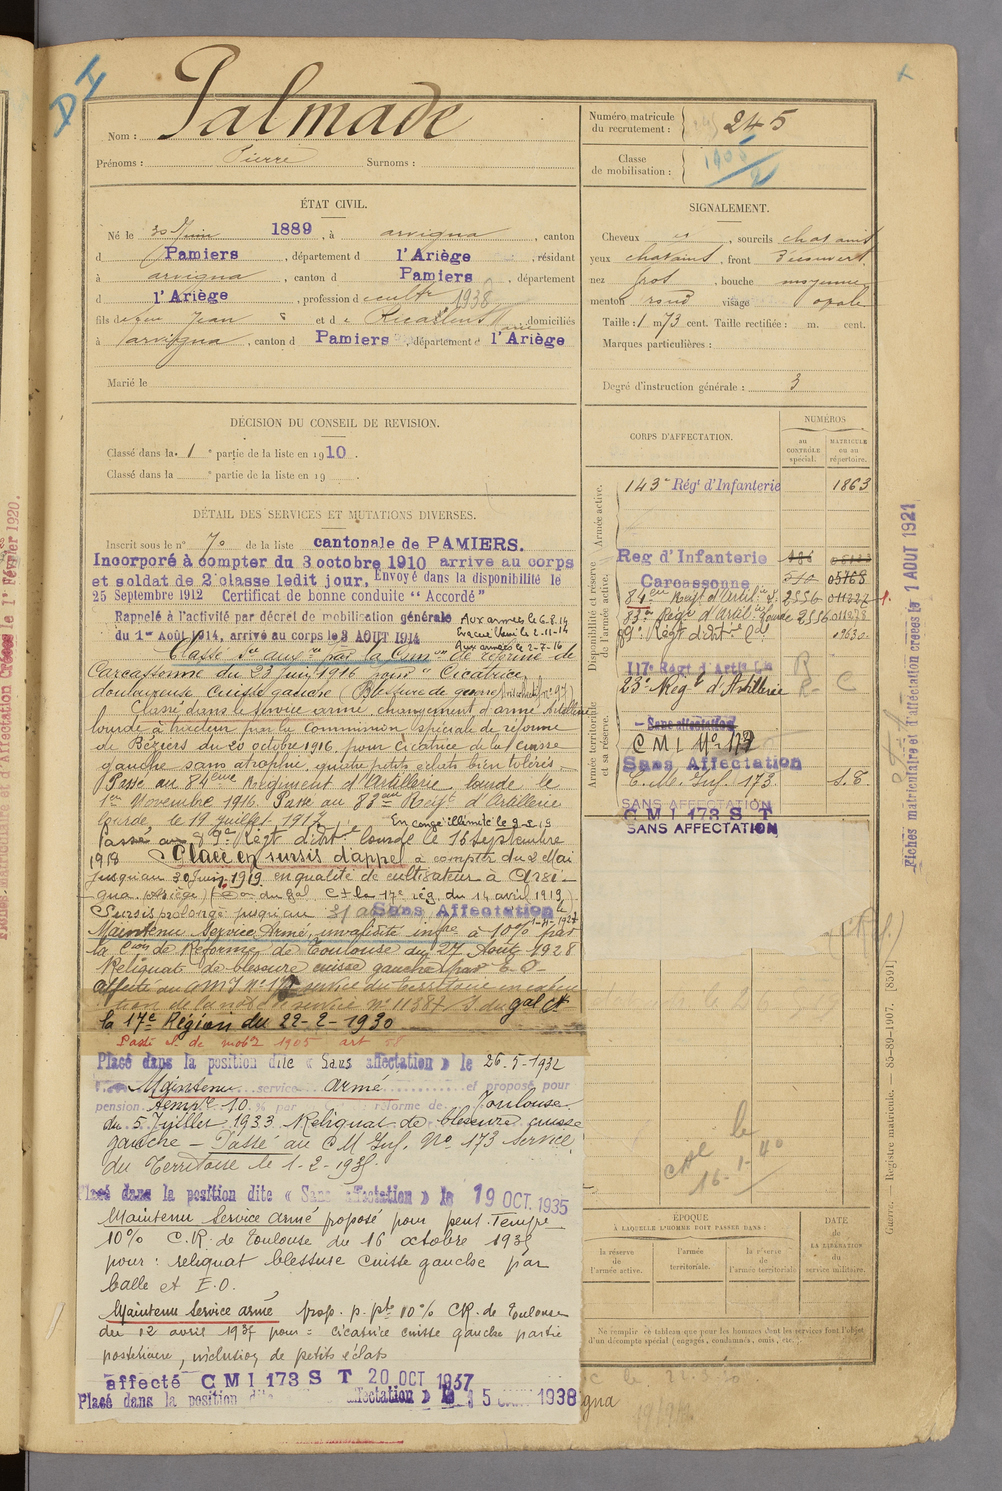 DI
Nom : Palmade
Prénoms : Pierre Surnoms :
Numéro matricule
du recrutement : 245
Classe
de mobilisation :
ÉTAT CIVIL.
Né le 30 Juin 1889, à arvigna, canton
d Pamiers, département d l'Ariège, résidant
à arvigna, canton d Pamiers, département
d l'Ariège, profession d cultr 1938
fils de feu Jean et de, domiciliés
à arvigna, canton d Pamiers, département d l'Ariège
Marié le
SIGNALEMENT.
Cheveux, sourcils chatains
yeux chatains, front découvert
nez gros, bouche moyenne
menton rond visage ovale
Taille : 1 m 73 cent. Taille rectifiée : m. cent.
Marques particulières :
Degré d'instruction générale : 3
DÉCISION DU CONSEIL DE REVISION.
Classé dans la 1e partie de la liste en 1910.
Classé dans la e partie de la liste en 19 .
DÉTAIL DES SERVICES ET MUTATIONS DIVERSES.
Inscrit sous le n° 70 de la liste cantonale de PAMIERS.
Incorporé à compter du 3 octobre 1910 arrivé au corps
et soldat de 2e classe ledit jour. Envoyé dans la disponibilité le
25 Septembre 1912 Certificat de bonne conduite "Accordé"
Rappelé à l'activité par décret de mobilisation générale Aux armées le 6.8.14
du 1er Août 1914, arrivé au corps le 3 AOUT 1914 Evacué le 2-11-14
Aux armées le 2-7-16
Classé Sce auxre par la Comon de réforme de
Carcassonne du 23 Juin 1916 pour "Cicatrice
douloureuse cuisse gauche (Blessure de guerre
Classé dans le service armé, changement d'arme Artillerie
lourde à tracteur par la commission spéciale de réforme
de Béziers du 20 octobre 1916, pour Cicatrice de la cuisse
gauche sans atrophie, quatre petits éclats bien tolérés.
Passé au 84ème Régiment d'Artillerie lourde le
1er Novembre 1916. Passé au 83ème Régt d'Artillerie
lourde, le 19 juillet 1917 En congé illimité le
Passé au 89e Régt d'Art.ie lourde le 16 Septembre
1918 Placé en sursis d'appel à compter du 2 Mai
jusqu'au 30 Juin 1919 en qualité de cultivateur à Arvi-
gna (Ariège) (Don du Gal Ct la 17e rég. du 14 avril 1919)
Sursis prolongé jusqu'au 31 Sans Affectation
Maintenu Service Armé, invalidité infre à 10% par
la Con de Réforme de Toulouse du 27 Août 1928
Reliquat de blessure cuisse gauche par E.O-
affecté au CMI N° 173 service du Territoire
service N° 11387 S. du gal Ct
la 17e Région du 22-2-1930
Passé cl. de mobn 1905 art 58
Placé dans la position dite « Sans affectation » le 26-5-1932
Maintenu service armé et proposé pour
pension tempre 10 % par réforme de Toulouse
du 5 Juillet 1933 Reliquat de blessure cuisse
gauche – Passé au C M Inf. N° 173 service
du Territoire le 1-2-1935.
Placé dans la position dite « Sans affectation » le 19 OCT. 1935
Maintenu Service armé proposé pour pens. Tempre
10% C.R. de Toulouse du 16 octobre 1935
pour : reliquat blessure cuisse gauche par
balle et E.O.
Maintenu Service armé prop. p. pte 10% CR. de Toulouse
du 12 avril 1937 pour : cicatrice cuisse gauche partie
postérieure, inclusion de petits éclats
affecté C M I 173 S T 20 OCT 1937
Placé dans la position dite affectation » le 15 1938
CORPS D'AFFECTATION.
NUMÉROS
au
CONTRÔLE
spécial.
MATRICULE
ou au
répertoire.
Armée active.
143e Régt d'Infanterie 1863
Disponibilité et réserve
de l'armée active.
Reg d'Infanterie
Carcassonne
05768
84eme Regt d'Artil.ie L. 2556
83e Régt d'Artil.ie lourde 2556
89e Régt d'Art.ie Lde
117e Régt d'Artie Lde R
23e Regt d'Artillerie R C
Armée territoriale
et sa réserve.
Sans affectation
C M I N° 173
Sans Affectation
C. M. Inf. 173. S.T.
SANS AFFECTATION
C M I 173 S T
SANS AFFECTATION
le
16-1-40
ÉPOQUE
À LAQUELLE L'HOMME DOIT PASSER DANS :
la réserve
de
l'armée active.
l'armée
territoriale.
la réserve
de
l'armée territoriale
DATE
de
LA LIBÉRATION
du
service militaire.
Ne remplir ce tableau que pour les hommes dont les services font l'objet
d'un décompte spécial (engagés, condamnés, omis, etc.).
gna
Fiches matriculaire et d'affectation créées le 1 AOUT 1921
Guerre. — Registre matricule. — 85-89-1907. [8591]
Fiches matriculaire et d'Affectation Créées le 1er Février 1920.